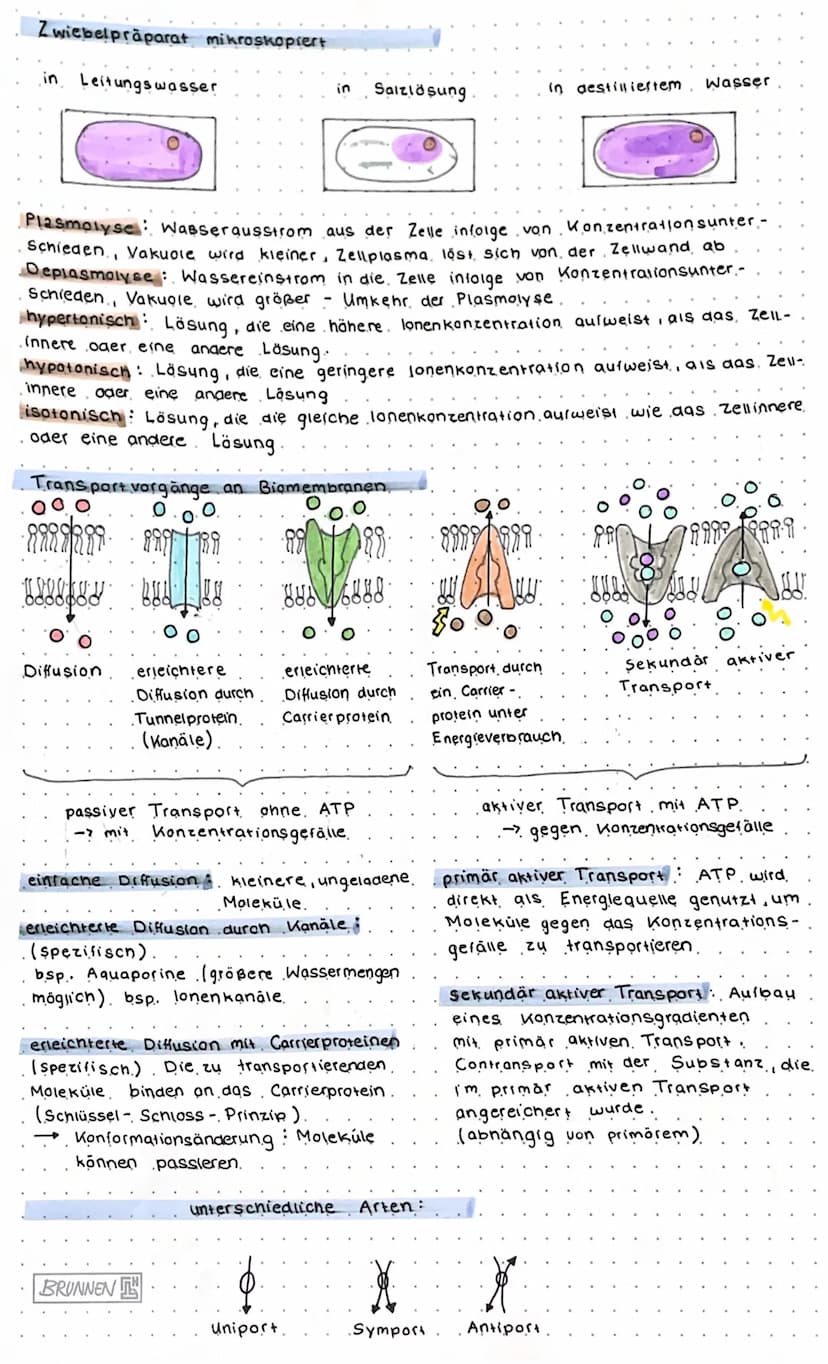 Zwiebelpräparat mikroskopiert
in Leitungswasser
in Salzlösung
in destilliertem Wasser
Plasmolyse: Wasserausstrom aus der Zelle infolge von Konzentrationsunter-
schieden, Vakuole wird kleiner, Zellplasma löst sich von der Zellwand ab
Deplasmolyse: Wassereinstrom in die Zelle infolge von Konzentrationsunter-
schieden, Vakuole wird größer - Umkehr der Plasmolyse
hypertonisch: Lösung, die eine höhere Ionenkonzentration aufweist, als das Zell-
innere oder eine andere Lösung.
hypotonisch: Lösung, die eine geringere Ionenkonzentration aufweist, als das Zell-
innere oder eine andere Lösung
isotonisch: Lösung, die die gleiche Ionenkonzentration aufweist wie das Zellinnere
oder eine andere Lösung
Transportvorgänge an Biomembranen
Diffusion
erleichtere
Diffusion durch
Tunnelprotein
(Kanäle)
erleichterte
Diffusion durch
Carrierprotein
Transport durch
ein Carrier-
protein unter
Energieverbrauch
Sekundär aktiver
Transport
passiver Transport ohne ATP
→ mit Konzentrationsgefälle
aktiver Transport mit ATP
→ gegen Konzentrationsgefälle
einfache Diffusion: kleinere, ungeladene
Moleküle
erleichterte Diffusion durch Kanäle:
(spezifisch)
bsp. Aquaporine (größere Wassermengen
möglich) bsp. Ionenkanäle
erleichterte Diffusion mit Carrierproteinen
(spezifisch) Die zu transportierenden
Moleküle binden an das Carrierprotein
(Schlüssel-Schloss-Prinzip)
→ Konformationsänderung: Moleküle
können passieren
primär aktiver Transport: ATP wird
direkt als Energiequelle genutzt, um
Moleküle gegen das Konzentrations-
gefälle zu transportieren
sekundär aktiver Transport: Aufbau
eines Konzentrationsgradienten
mit primär aktiven Transport.
Contransport mit der Substanz, die
im primär aktiven Transport
angereichert wurde.
(abhängig von primärem)
unterschiedliche Arten:
BRUNNEN
Uniport
Symport
Antiport